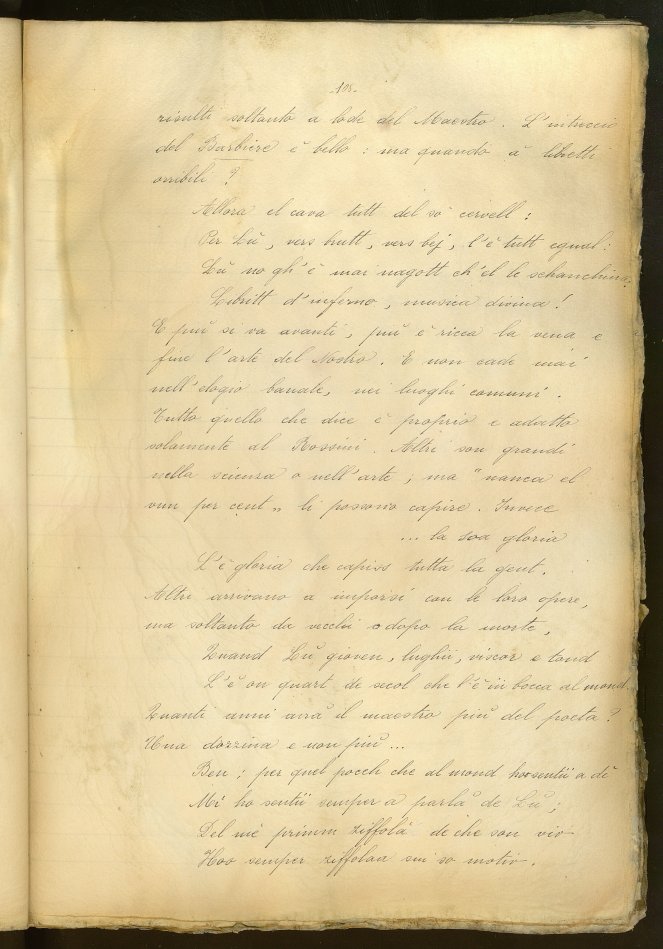 -108-
risulti soltanto a lode del Maestro. L'intreccio
del Barbiere è bello: ma quando à libretti
orribili?
Allora el cava tutt del sò cervell:
Per Lù, vers brutt, vers bej, l'è tutt egual:
Lù no gh'è mai nagott ch'el le
Libritt d'inferno, musica divina!
E più si va avanti, più è ricca la vena e
fine l'arte del Nostro. E non cade mai
nell'elogio banale, nei luoghi comuni.
Tutto quello che dice è proprio e adatto
solamente al Rossini. Altri son grandi
nella scienza o nell'arte, ma "nanca el
vun per cent" li possono capire. Invece
... la soa gloria
L'è gloria che capiss tutta la gent.
Altri arrivano a imporsi con le loro opere,
ma soltanto da vecchi o dopo la morte,
Quand Lù gioven, viscor e tond
L'è on quart de secol che l'è in bocca al mond
Quanti anni avrà il maestro più del poeta?
Una dozzina e non più...
Ben: per quel pocch che al mond ho sentii a dì
Mì ho sentii semper a parlà de Lù;
Del mè primm ziffolà de che son viv
Hoo semper ziffolaa sui so motiv.